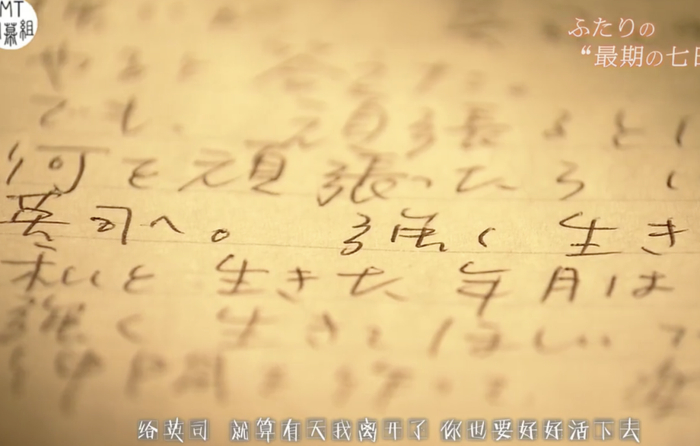 MT
幕組
ふたりの
“最期の七日
でも、頑張ろうとし
何を頑張ったらい
英司へ。 強く生き
私と生きた年月は
強く 生きてほしい
给英司 就算有天我离开了 你也要好好活下去